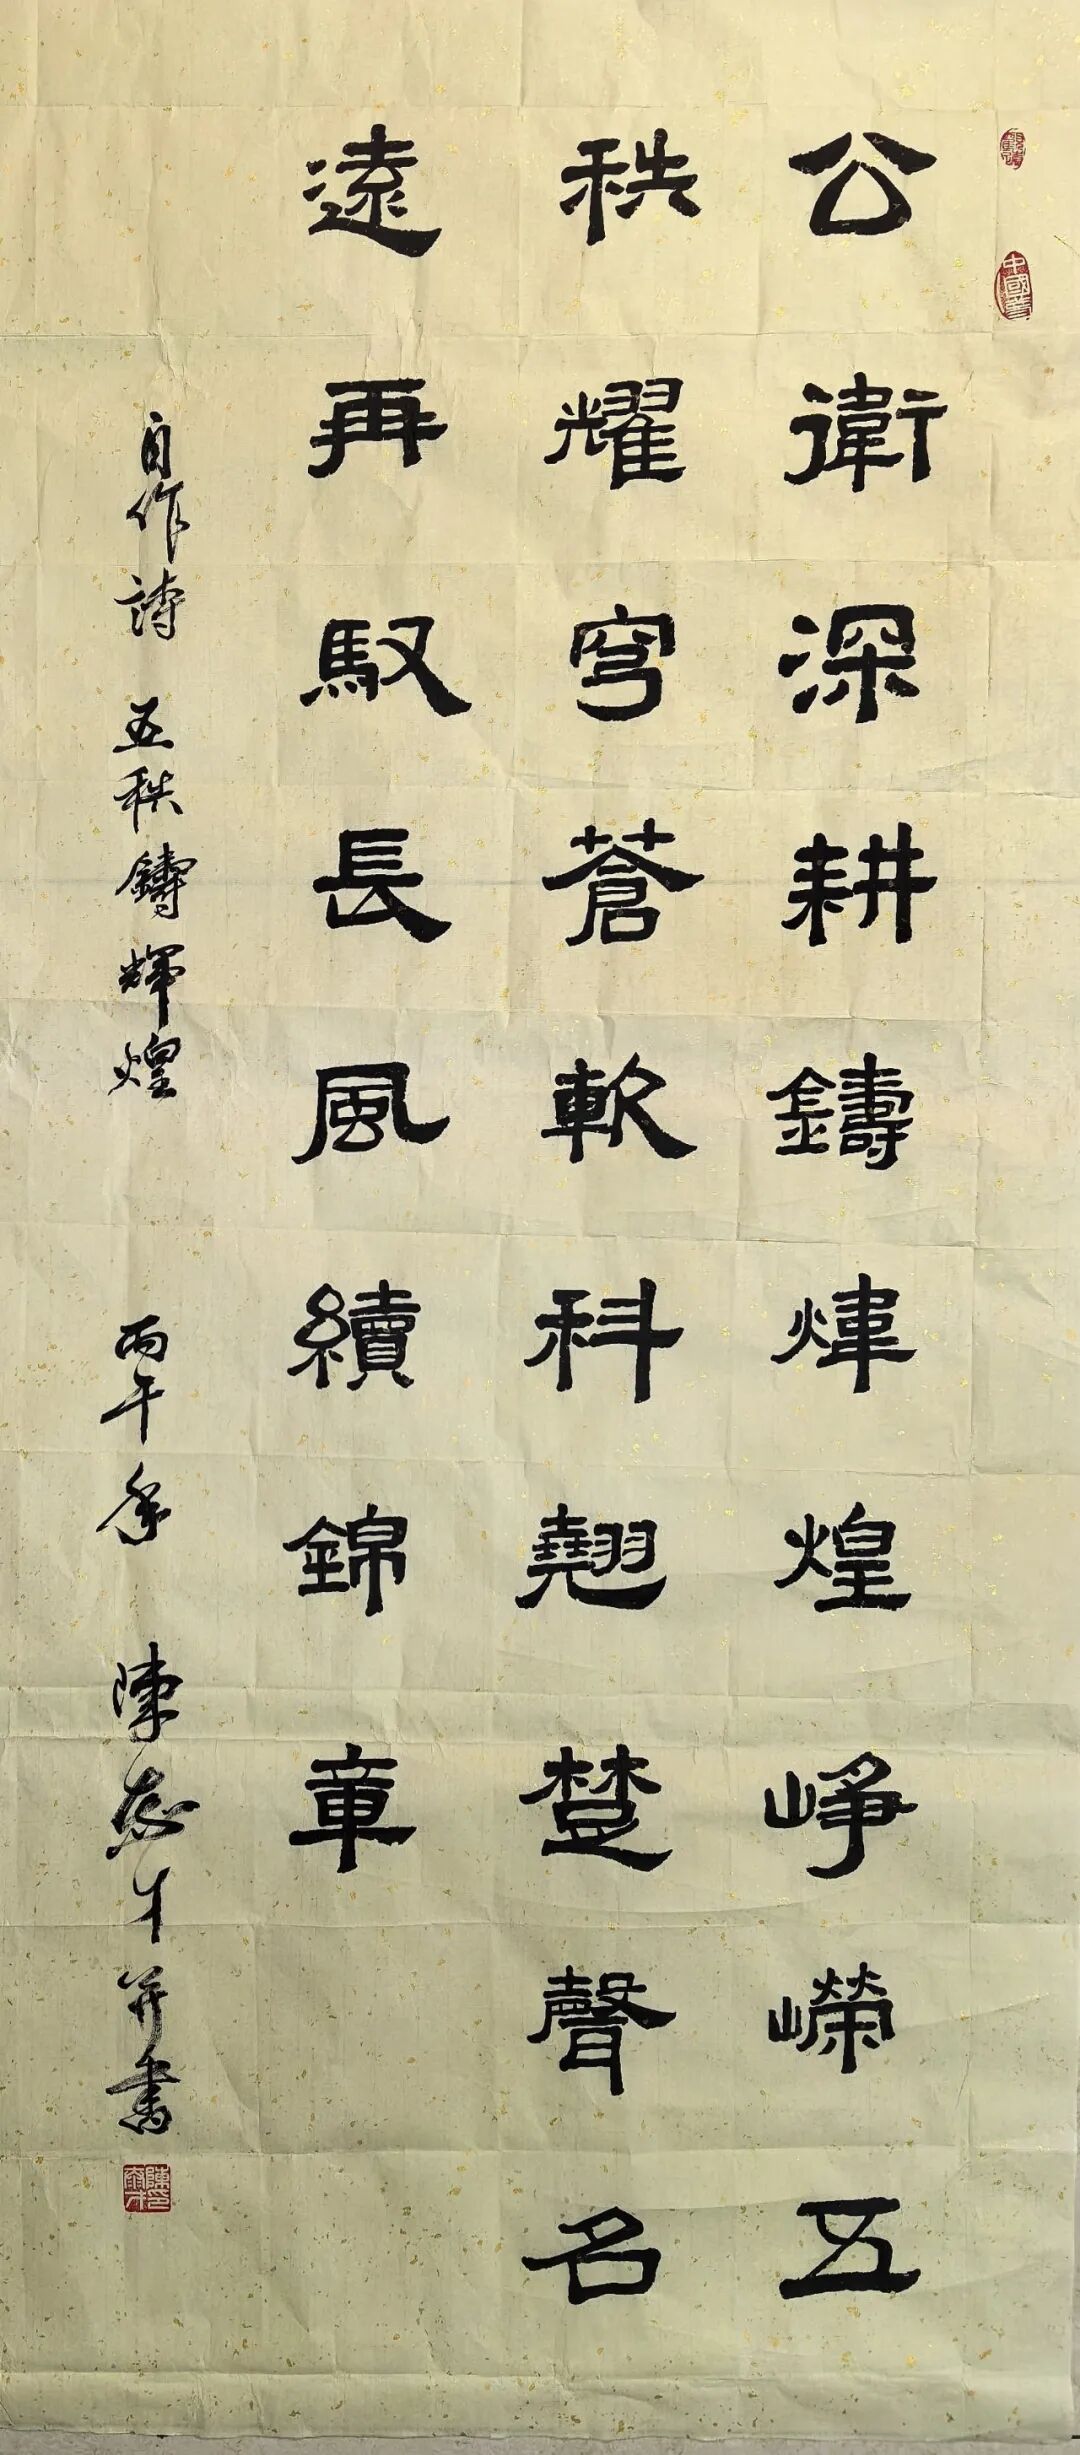 中國夢
公衛深耕鑄煒煌崢嶸五
秩耀穹蒼軟科翹楚聲名
遠再馭長風續錦章
自作詩 五秩鑄輝煌 丙午年 陳 才并書